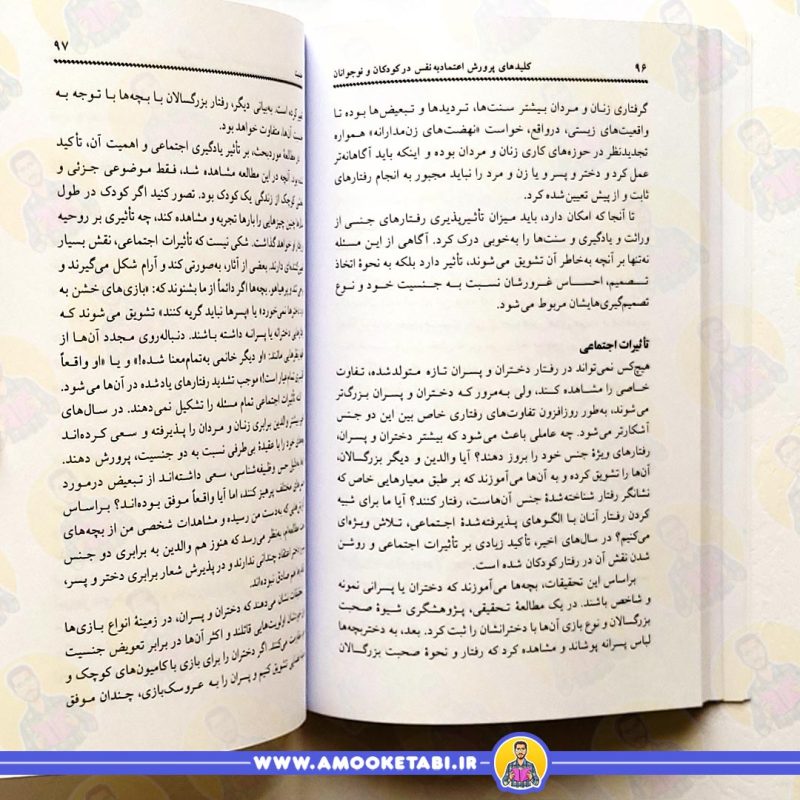 ۹۶ کلیدهای پرورش اعتمادبه‌نفس در کودکان و نوجوانان
گرفتاری زنان و مردان بیشتر سنت‌ها، تردیدها و تبعیض‌ها بوده تا
واقعیت‌های زیستی، درواقع، خواست «نهضت‌های زن‌مدارانه» همواره
تجدیدنظر در حوزه‌های کاری زنان و مردان بوده و اینکه باید آگاهانه‌تر
عمل کرد و دختر و پسر و یا زن و مرد را نباید مجبور به انجام رفتارهای
ثابت و از پیش تعیین‌شده کرد.
تا آنجا که امکان دارد، باید میزان تأثیرپذیری رفتارهای جنسی از
وراثت و یادگیری و سنت‌ها را به‌خوبی درک کرد. آگاهی از این مسئله
نه‌تنها بر آنچه به‌خاطر آن تشویق می‌شوند، تأثیر دارد بلکه به نحوهٔ اتخاذ
تصمیم، احساس غرورشان نسبت به جنسیت خود و نوع
تصمیم‌گیری‌هایشان مربوط می‌شود.
تأثیرات اجتماعی
هیچ‌کس نمی‌تواند در رفتار دختران و پسران تازه متولدشده، تفاوت
خاصی را مشاهده کند، ولی به‌مرور که دختران و پسران بزرگ‌تر
می‌شوند، به‌طور روزافزون تفاوت‌های رفتاری خاص بین این دو جنس
آشکارتر می‌شود. چه عاملی باعث می‌شود که بیشتر دختران و پسران،
رفتارهای ویژهٔ جنس خود را بروز دهند؟ آیا والدین و دیگر بزرگسالان،
آن‌ها را تشویق کرده و به آن‌ها می‌آموزند که بر طبق معیارهایی خاص که
نشانگر رفتار شناخته‌شدهٔ جنس آن‌هاست، رفتار کنند؟ آیا ما برای شبیه
کردن رفتار آنان با الگوهای پذیرفته‌شدهٔ اجتماعی، تلاش ویژه‌ای
می‌کنیم؟ در سال‌های اخیر، تأکید زیادی بر تأثیرات اجتماعی و روشن
شدن نقش آن در رفتار کودکان شده است.
براساس این تحقیقات، بچه‌ها می‌آموزند که دختران یا پسرانی نمونه
و شاخص باشند. در یک مطالعهٔ تحقیقی، پژوهشگری شیوهٔ صحبت
بزرگسالان و نوع بازی آن‌ها با دخترانشان را ثبت کرد. بعد، به دختربچه‌ها
لباس پسرانه پوشاند و مشاهده کرد که رفتار و نحوهٔ صحبت بزرگسالان
۹۷
کرده است. به‌بیانی دیگر، رفتار بزرگسالان با بچه‌ها با توجه به
آن‌ها، متفاوت خواهد بود.
در مطالعهٔ موردبحث، بر تأثیر یادگیری اجتماعی و اهمیت آن، تأکید
آنچه در این مطالعه مشاهده شد، فقط موضوعی جزئی و
کوچک از زندگی یک کودک بود. تصور کنید اگر کودک در طول
چنین چیزهایی را بارها تجربه و مشاهده کند، چه تأثیری بر روحیه
او خواهد گذاشت. شکی نیست که تأثیرات اجتماعی، نقش بسیار
دارند. بعضی از آثار، به‌صورتی کند و آرام شکل می‌گیرند و
پرهیاهو. بچه‌ها اگر دائماً از ما بشنوند که: «بازی‌های خشن به
نمی‌خورد» یا «پسرها نباید گریه کنند» تشویق می‌شوند که
دخترانه یا پسرانه داشته باشند. دنباله‌روی مجدد آن‌ها از
مانند: «او دیگر خانمی به‌تمام‌معنا شده!» و یا «او واقعاً
است!» موجب تشدید رفتارهای یادشده در آن‌ها می‌شود.
تأثیرات اجتماعی تمام مسئله را تشکیل نمی‌دهند. در سال‌های
بیشتر والدین برابری زنان و مردان را پذیرفته و سعی کرده‌اند
خود را با عقیدهٔ بی‌طرفی نسبت به دو جنسیت، پرورش دهند.
حس وظیفه‌شناسی، سعی داشته‌اند از تبعیض درمورد
مختلف پرهیز کنند، اما آیا واقعاً موفق بوده‌اند؟ براساس
که به‌دست من رسیده و مشاهدات شخصی من از بچه‌های
به‌نظر می‌رسد که هنوز هم والدین به برابری دو جنس
اعتقاد چندانی ندارند و در پذیرش شعار برابری دختر و پسر،
هم صادق نبوده‌اند.
نشان می‌دهند که دختران و پسران، در زمینهٔ انواع بازی‌ها
اولویت‌هایی قائلند و اکثر آن‌ها در برابر تعویض جنسیت
می‌کنند. اگر دختران را برای بازی با کامیون‌های کوچک و
تشویق کنیم و پسران را به عروسک‌بازی، چندان موفق
WWW.AMOOKETABI.IR